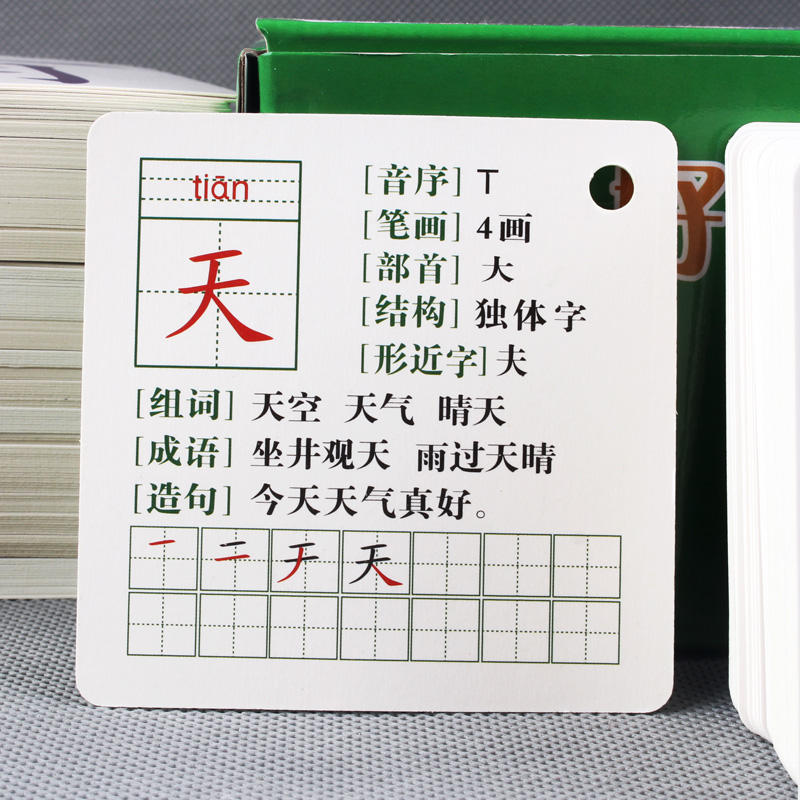 tiān
天
[音序] T
[笔画] 4画
[部首] 大
[结构] 独体字
[形近字] 夫
[组词] 天空 天气 晴天
[成语] 坐井观天 雨过天晴
[造句] 今天天气真好。